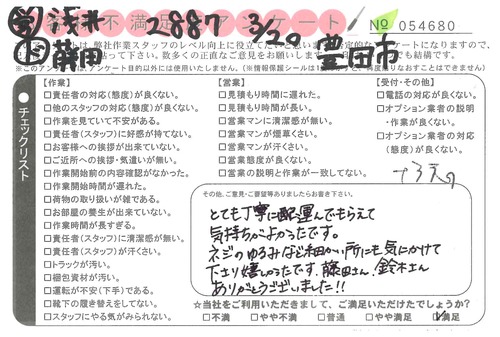 営 浅井 2887 3/20 No 054680
作 藤田 豊田市
不満足 アンケート
は、弊社作業スタッフのレベル向上に役立てたいと思い
数多くの正直なご意見をお願い
※このアンケートは、アンケート目的以外には使用いたしません。
チェックリスト
【作業】
□責任者の対応(態度)が良くない。
□他のスタッフの対応(態度)が良くない。
□作業を見ていて不安がある。
□責任者(スタッフ)に好感が持てない。
□お客様への挨拶が出来ていない。
□ご近所への挨拶・気遣いが無い。
□作業開始前の内容確認がなかった。
□作業開始時間が遅れた。
□荷物の取り扱いが雑である。
□お部屋の養生が出来ていない。
□作業時間が長すぎる。
□責任者(スタッフ)に清潔感が無い。
□責任者(スタッフ)が汗くさい。
□トラックが汚い。
□梱包資材が汚い。
□運転が不安(下手)である。
□靴下の履き替えをしてない。
□スタッフにやる気がみられない。
【営業】
□見積もり時間に遅れた。
□見積もり時間が長い。
□営業マンに清潔感が無い。
□営業マンが煙草くさい。
□営業マンが汗くさい。
□営業態度が良くない。
□営業の説明と作業が一致してない。
【受付・その他】
□電話の対応が良くない。
□オプション業者の説明
・作業が良くない。
□オプション業者の対応
(態度)が良くない。
その他、ご意見・ご要望等ありましたらお書き下さい。
とても丁寧に配運んでもらえて
気持ちがよかったです。
ネジのゆるみなど細かい所にも気にかけて
下さり嬉しかったです。藤田さん、鈴木さん
ありがとうございました!!
☆当社をご利用いただきまして、ご満足いただけたでしょうか?
□不満 □やや不満 □普通 □やや満足 □満足